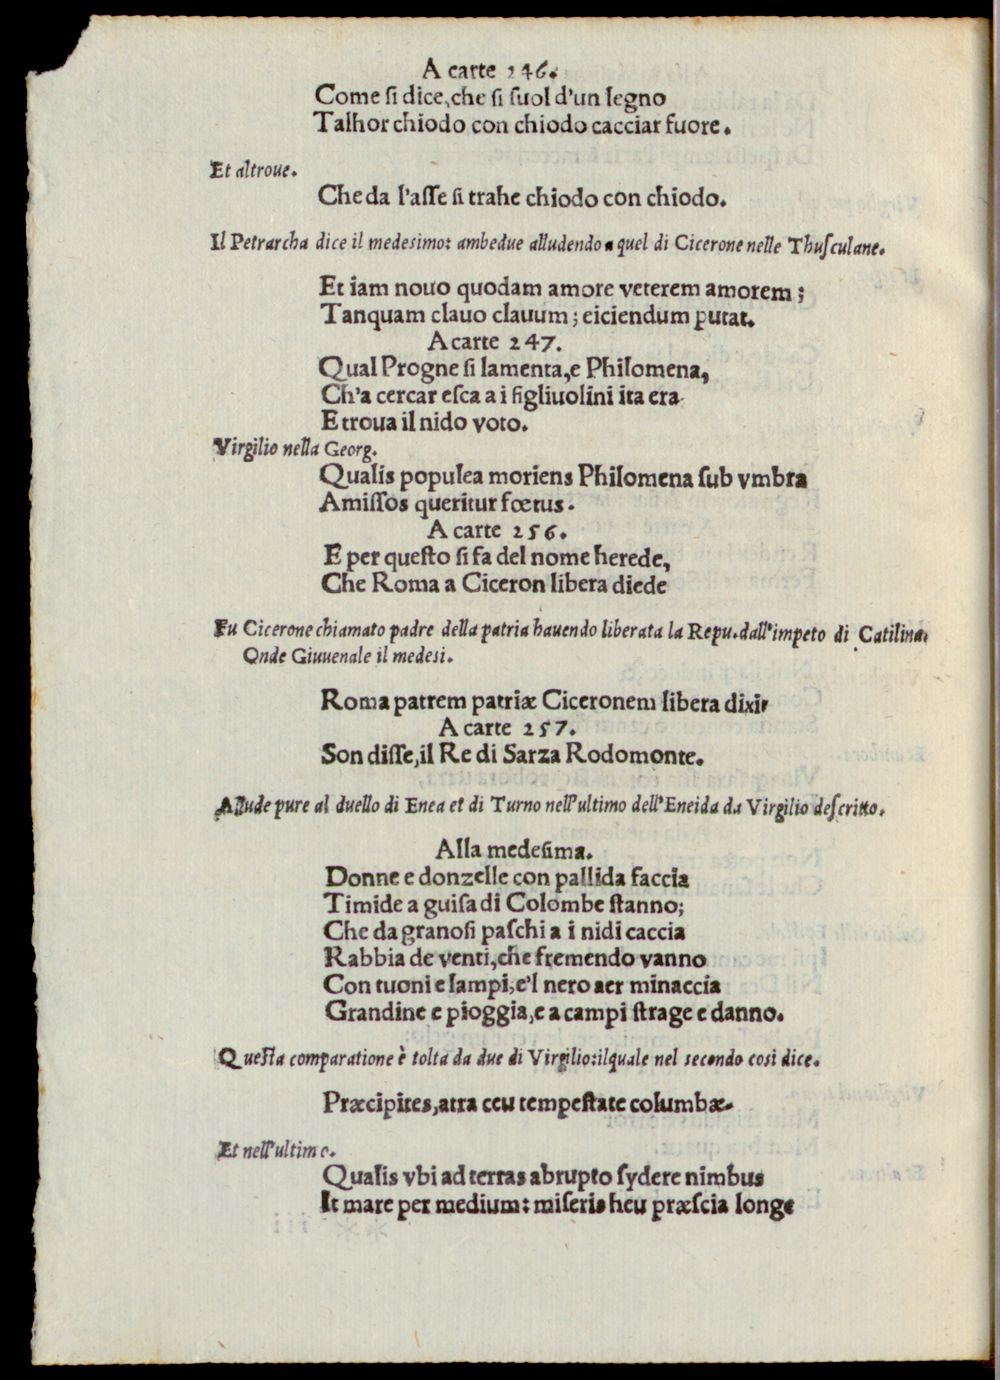 A carte 246.
Come ſi dice, che ſi ſuol d'un legno
Talhor chiodo con chiodo cacciar fuore.
Et altroue.
Che da l'aſſe ſi trahe chiodo con chiodo.
Il Petrarcha dice il medesimo: ambedue alludendo a quel di Cicerone nelle Thuſculane.
Et iam nouo quodam amore veterem amorem;
Tanquam clauo clauum; eiciendum putat.
A carte 247.
Qual Progne ſi lamenta, e Philomena,
Ch'a cercar eſca a i figliuolini ita era
E troua il nido voto.
Virgilio nella Georg.
Qualis populea moriens Philomena ſub vmbra
Amiſſos queritur fœtus.
A carte 256.
E per queſto ſi fa del nome herede,
Che Roma a Ciceron libera diede
Fu Cicerone chiamato padre della patria hauendo liberata la Repu. dall'impeto di Catilina.
Onde Giuuenale il medesi.
Roma patrem patriæ Ciceronem libera dixit
A carte 257.
Son diſſe, il Re di Sarza Rodomonte.
Allude pure al duello di Enea et di Turno nell'ultimo dell'Eneida da Virgilio deſcritto.
Alla medeſima.
Donne e donzelle con pallida faccia
Timide a guiſa di Colombe ſtanno;
Che da granoſi paſchi a i nidi caccia
Rabbia de venti, che fremendo vanno
Con tuoni e lampi, e'l nero aer minaccia
Grandine e pioggia, e a campi ſtrage e danno.
Queſta comparatione è tolta da due di Virgilio: ilquale nel secondo cosi dice.
Præcipites, atra ceu tempeſtate columbæ.
Et nell'ultimo.
Qualis vbi ad terras abrupto ſydere nimbus
It mare per medium: miſeris heu præſcia longe